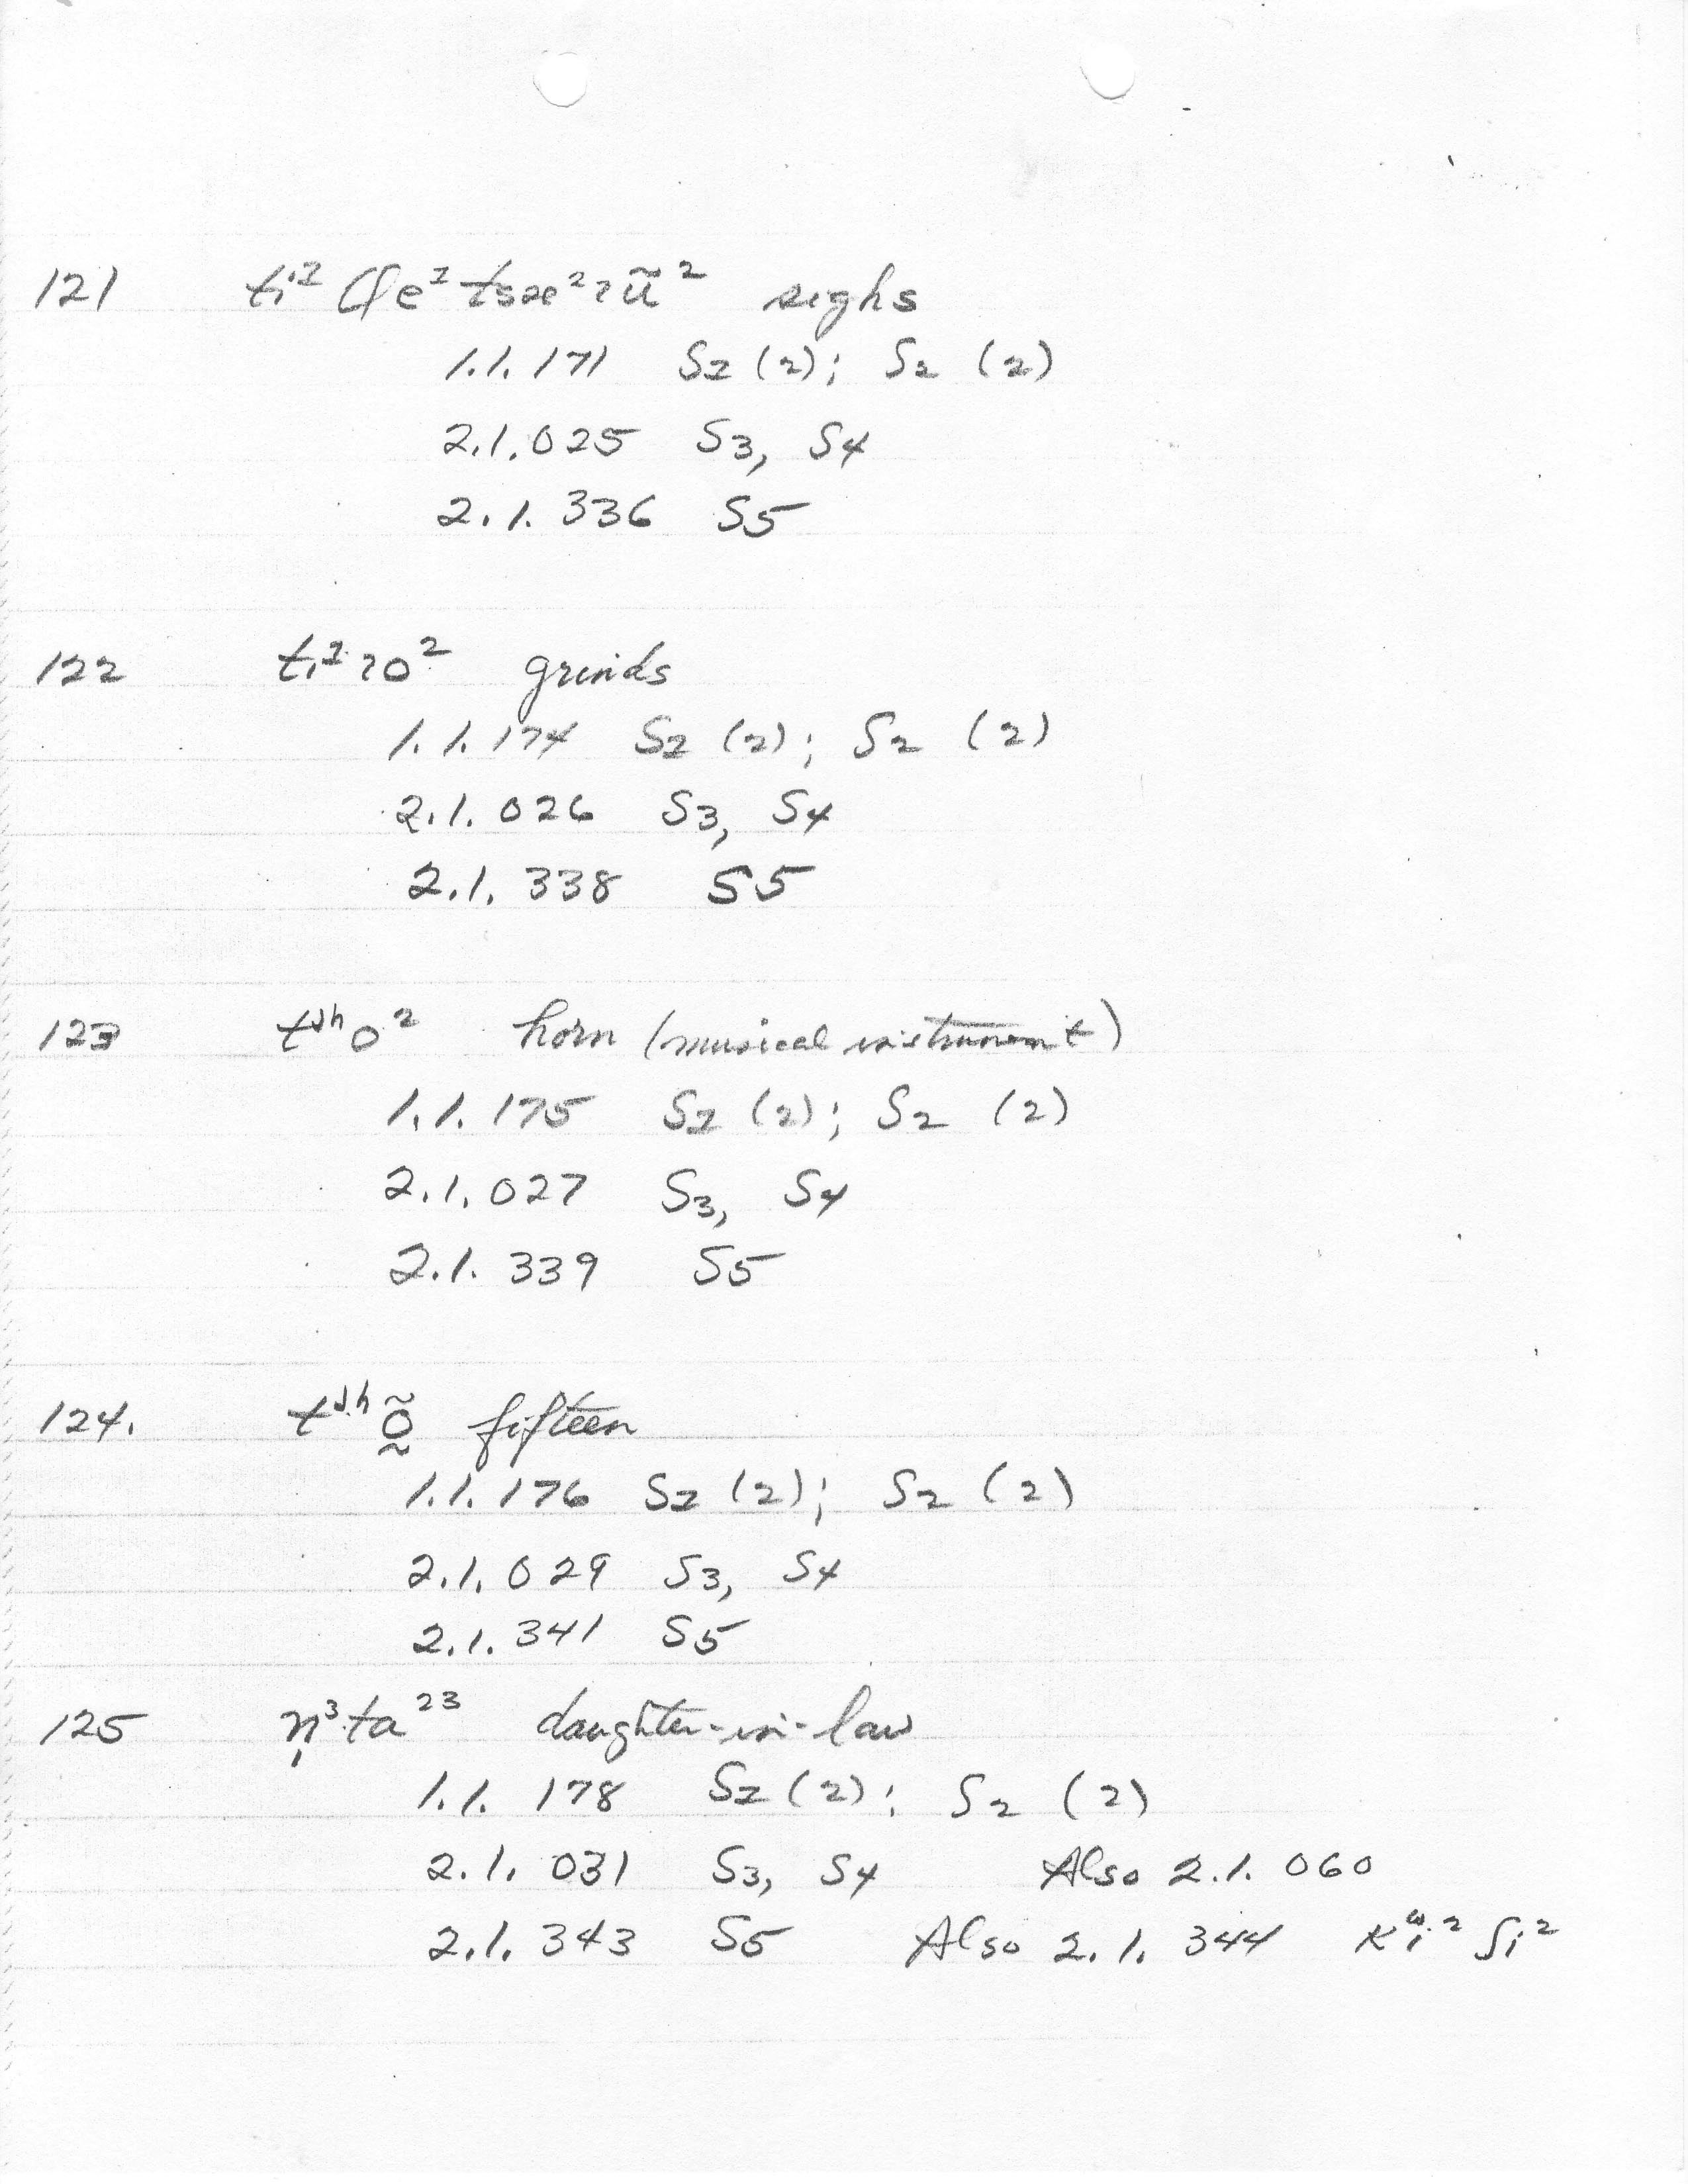 121 ti² ʃe² tsæ²ʔũ² sighs
1.1.171 S1 (2); S2 (2)
2.1.025 S3, S4
2.1.336 S5
122 ti¹ʔo² grinds
1.1.174 S1 (2); S2 (2)
2.1.026 S3, S4
2.1.338 S5
123 tʲʰo² horn (musical instrument)
1.1.175 S1 (2); S2 (2)
2.1.027 S3, S4
2.1.339 S5
124. tʲʰõ̰ fifteen
1.1.176 S1 (2); S2 (2)
2.1.029 S3, S4
2.1.341 S5
125 n̩³ta²³ daughter-in-law
1.1.178 S1 (2); S2 (2)
2.1.031 S3, S4 Also 2.1.060
2.1.343 S5 Also 2.1.344 kʷi² ʃi²